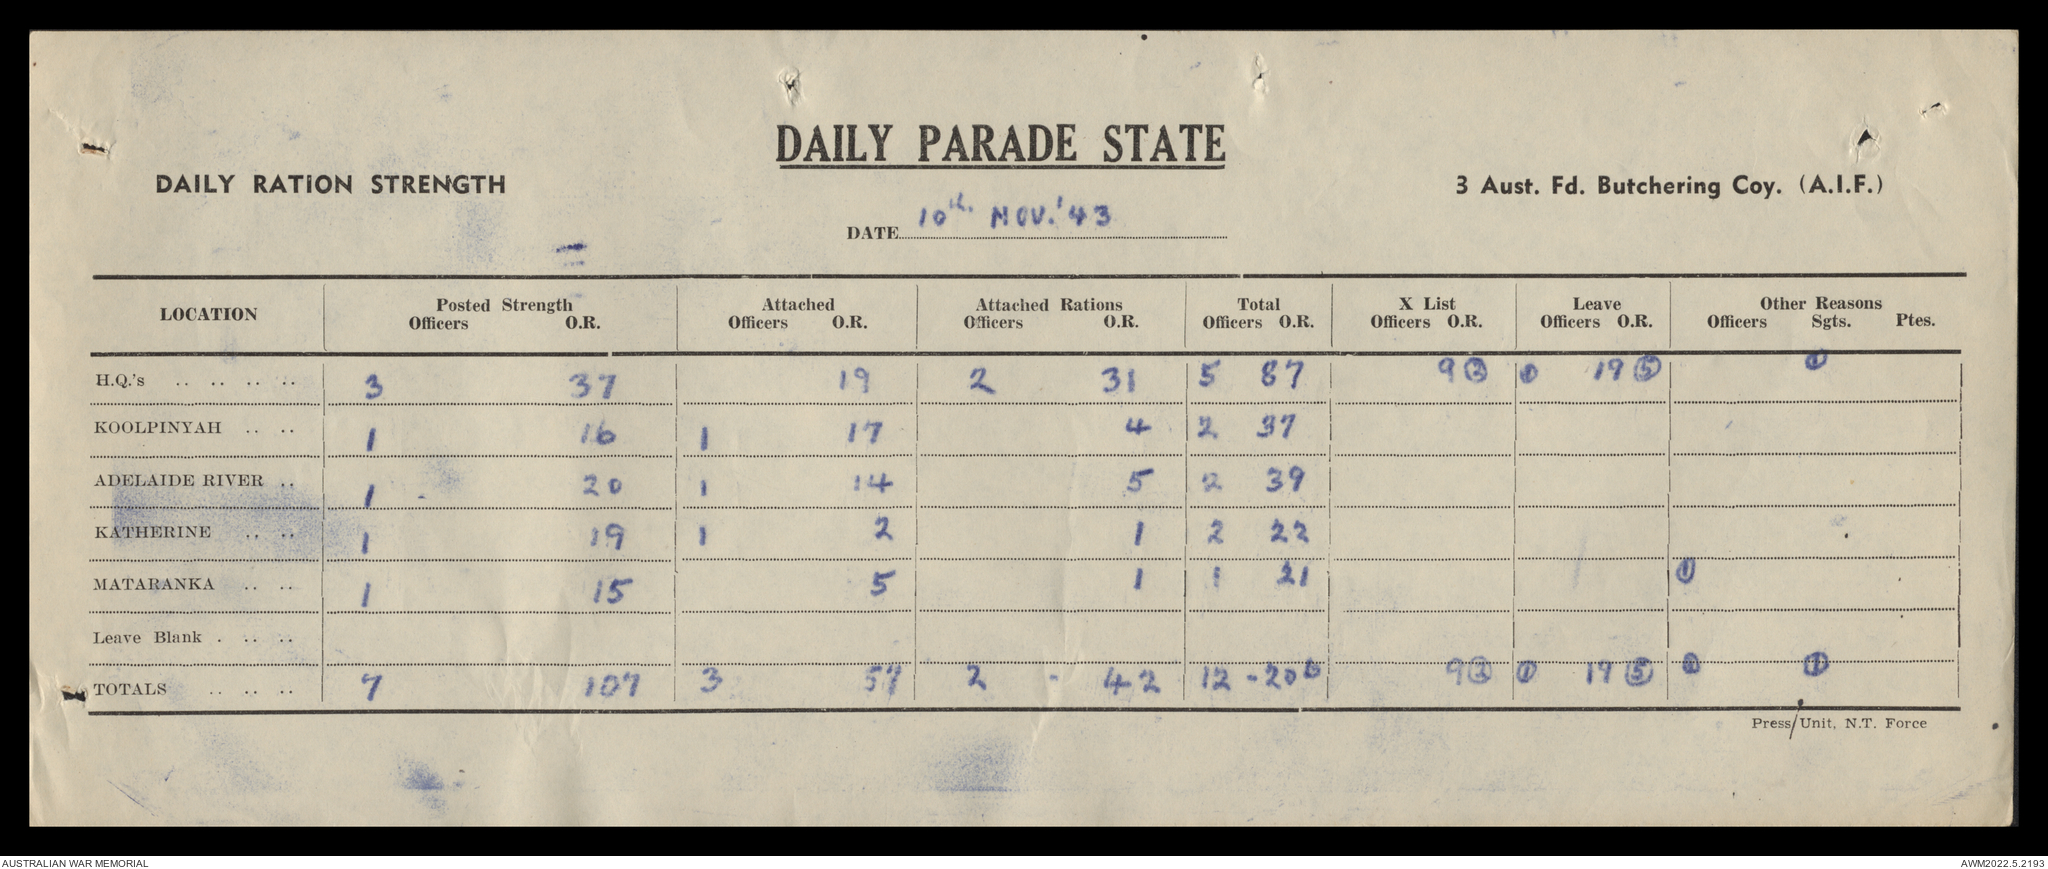 DAILY PARADE STATE
DAILY RATION STRENGTH
3 Aust. Fd. Butchering Coy. (A.I.F.)
DATE 10th Nov. '43
LOCATION Posted Strength Attached Attached Rations Total X List Leave Other Reasons
Officers O.R. Officers O.R. Officers O.R. Officers O.R. Officers O.R. Officers O.R. Officers Sgts. Ptes.
H.Q.'s .. .. .. .. 3 37 19 2 31 5 87 9 ② ① 19 ⑤ ①
KOOLPINYAH .. .. 1 16 1 17 4 2 37
ADELAIDE RIVER .. 1 - 20 1 14 5 2 39
KATHERINE .. .. 1 19 1 2 1 2 22
MATARANKA .. .. 1 15 5 1 1 21 ①
Leave Blank . .. ..
TOTALS .. .. .. 7 107 3 57 2 - 42 12 - 206 9 ② ① 19 ⑤ ①
Press/Unit, N.T. Force
AUSTRALIAN WAR MEMORIAL
AWM2022.5.2193